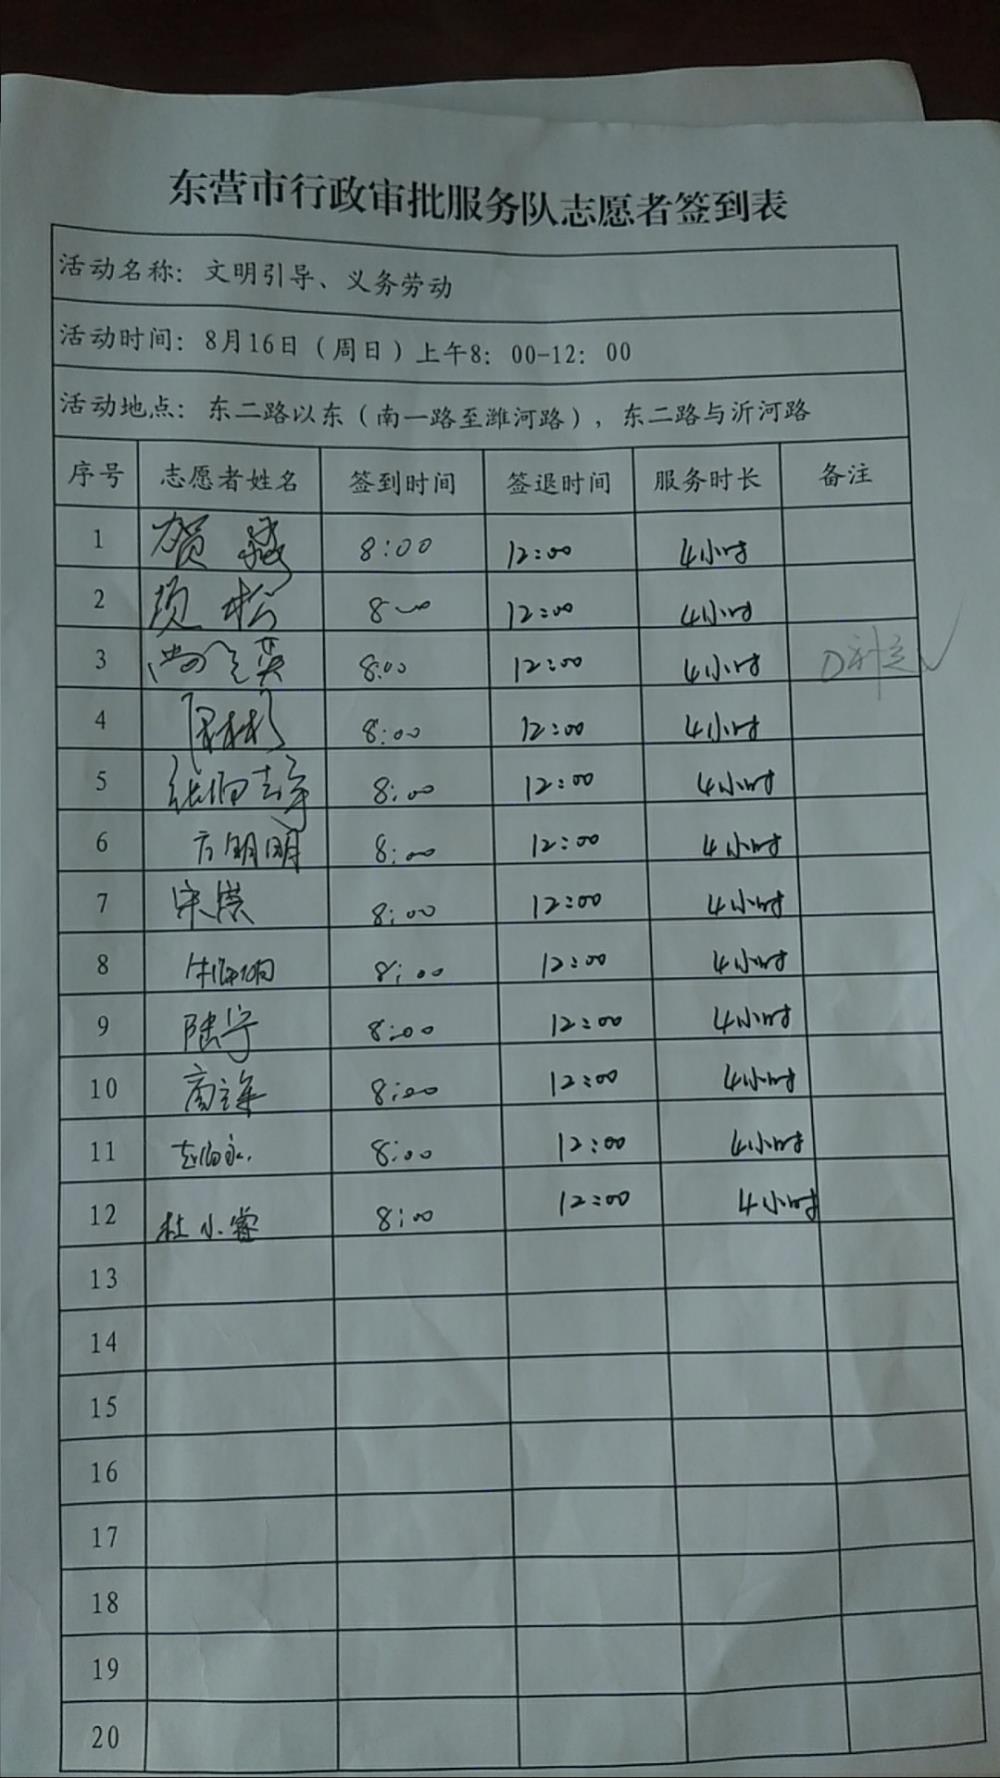 东营市行政审批服务队志愿者签到表
活动名称：文明引导、义务劳动
活动时间：8月16日（周日）上午8：00-12：00
活动地点：东二路以东（南一路至潍河路），东二路与沂河路
序号 志愿者姓名 签到时间 签退时间 服务时长 备注
1 贺 8:00 12:00 4小时
2 项松 8:00 12:00 4小时
3 8:00 12:00 4小时
4 8:00 12:00 4小时
5 8:00 12:00 4小时
6 方明明 8:00 12:00 4小时
7 宋 8:00 12:00 4小时
8 8:00 12:00 4小时
9 陆宁 8:00 12:00 4小时
10 8:00 12:00 4小时
11 8:00 12:00 4小时
12 杜小睿 8:00 12:00 4小时
13
14
15
16
17
18
19
20